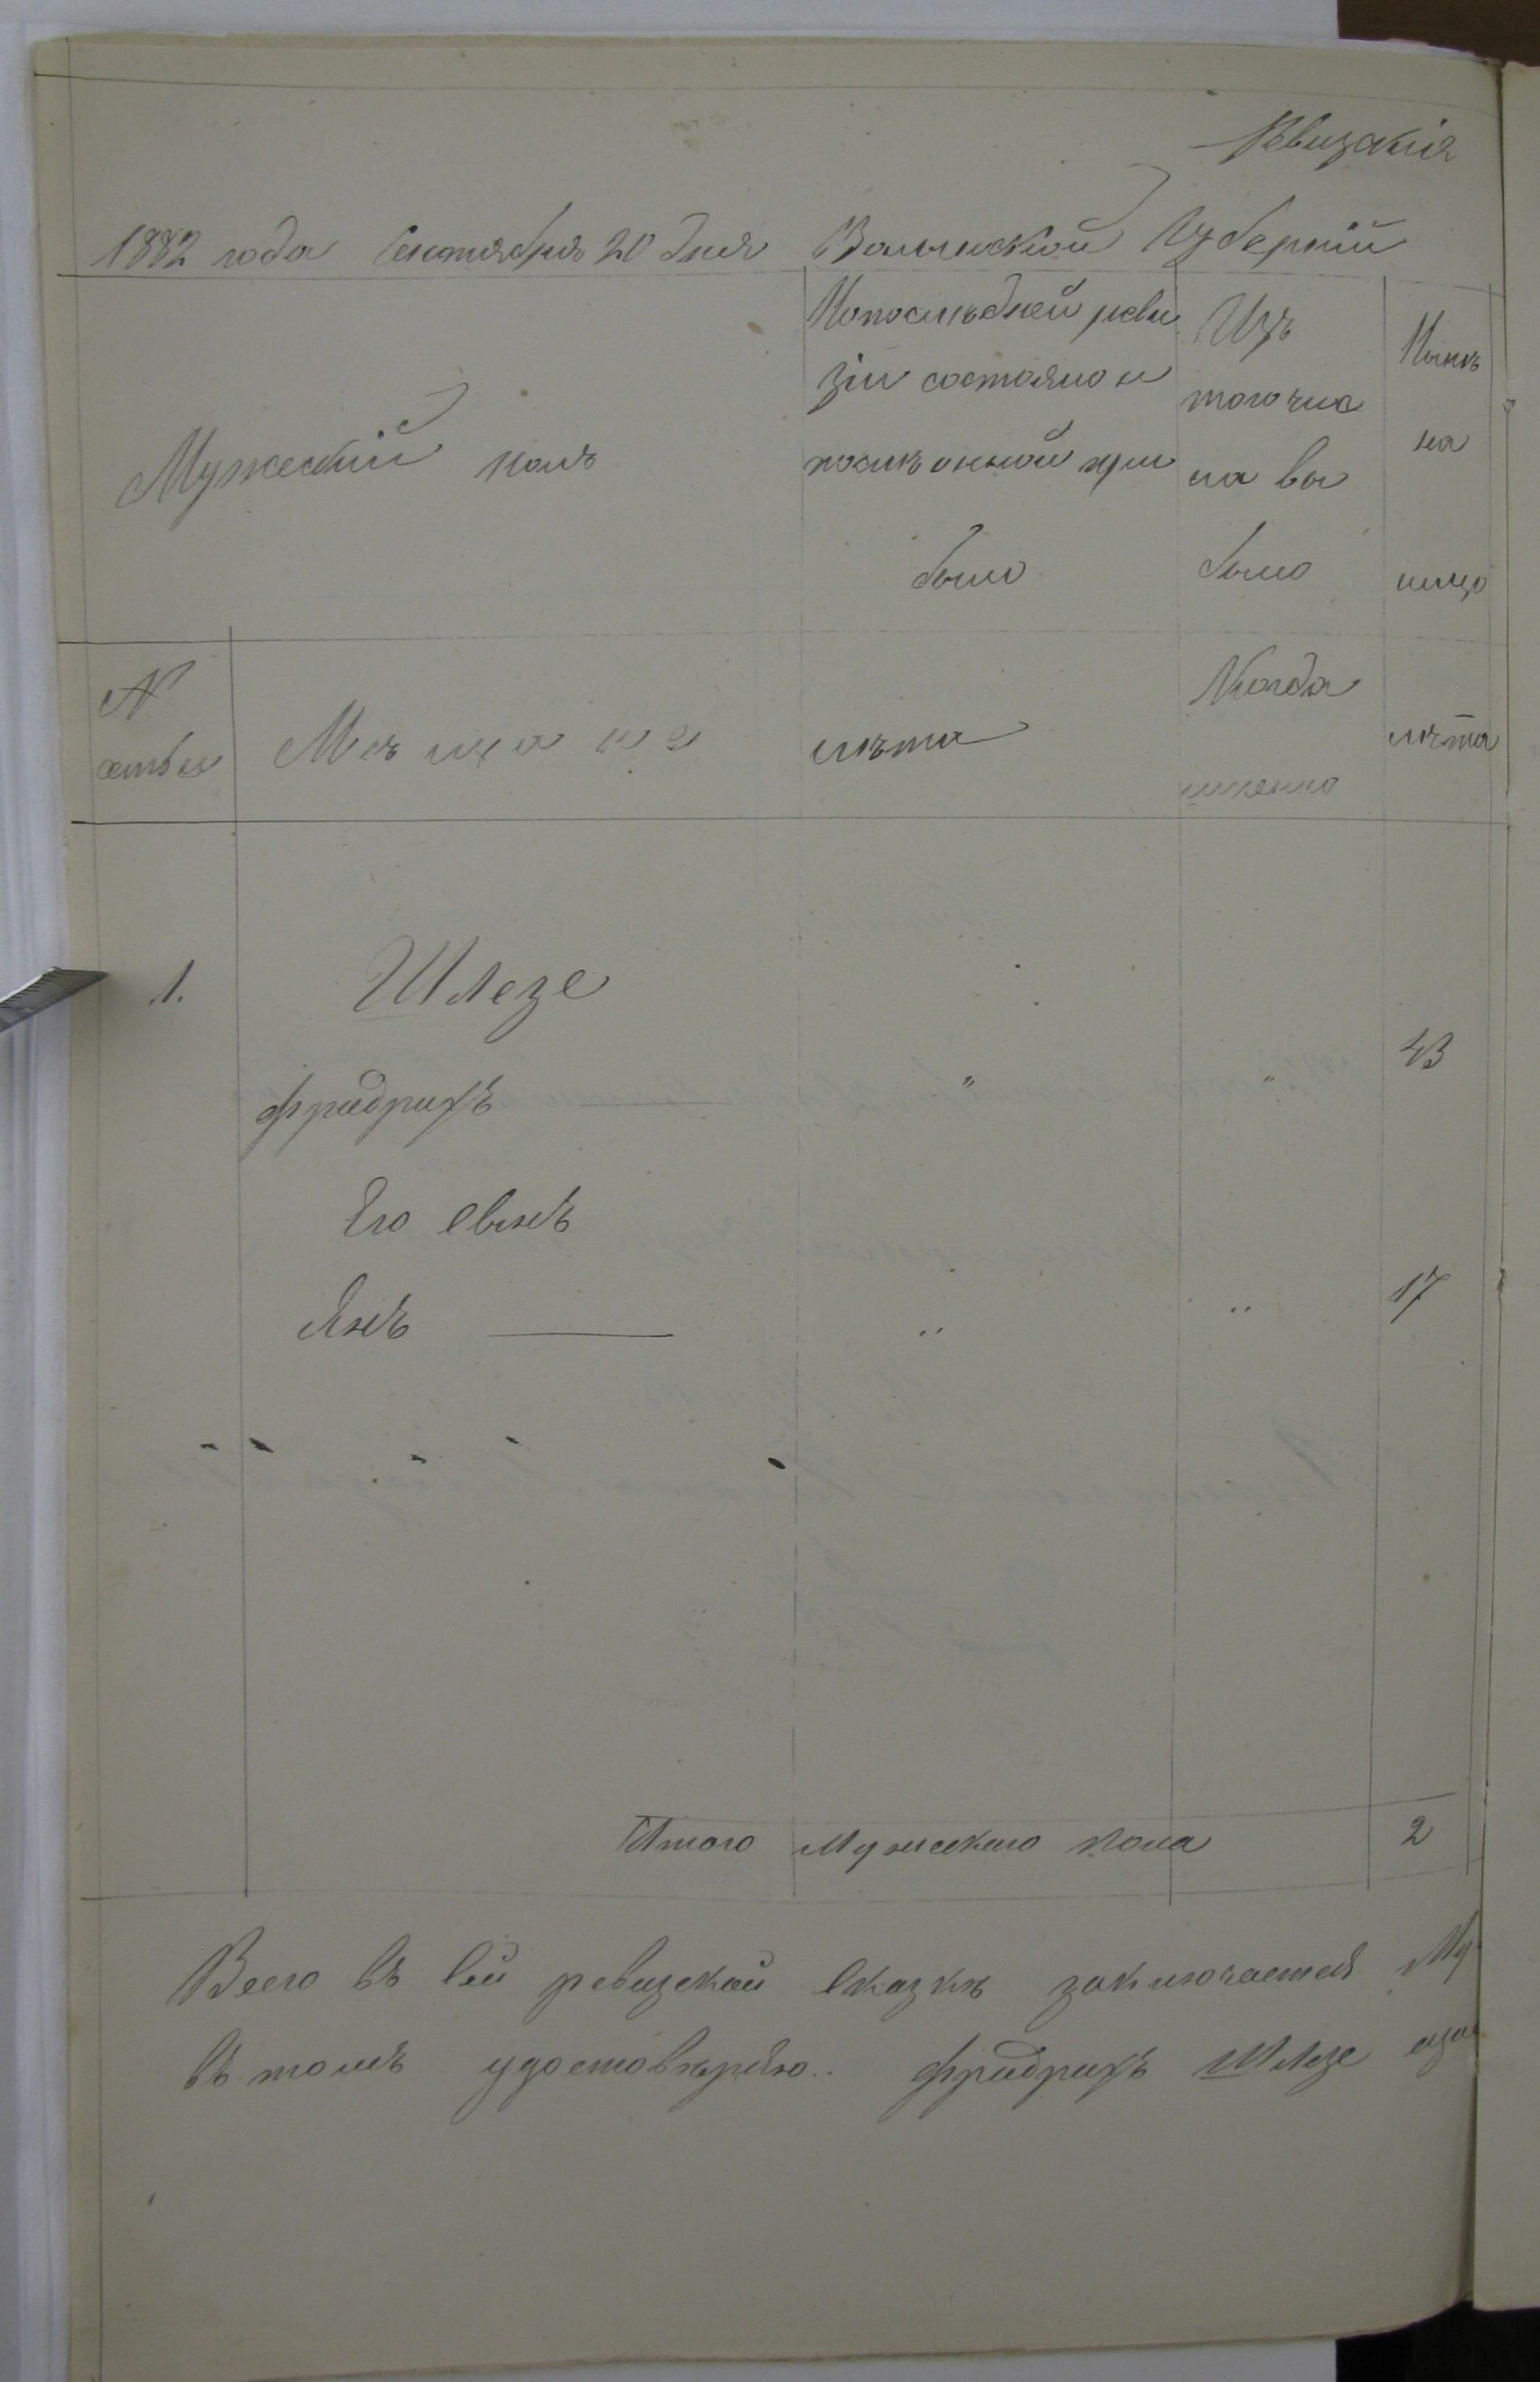 Ревизкія
1882 года Сентября 20 дня Волынской Губерніи
Мужескій полъ
Попослѣдней реви
зіи состояло и
послѣ онной при
было
Изъ
того чис
ла вы
было
Нынѣ
на
лицо
№
стьи
Мѣщане
лѣта
Когда
лѣта
1. Шлезе
Фридрихъ — " " 43
Его Сынъ
Янъ — " " 17
Итого Мужескаго пола 2
Всего въ Сей ревизской Сказкѣ заключается Му
въ томъ удостовѣряю.. Фридрихъ Шлезе